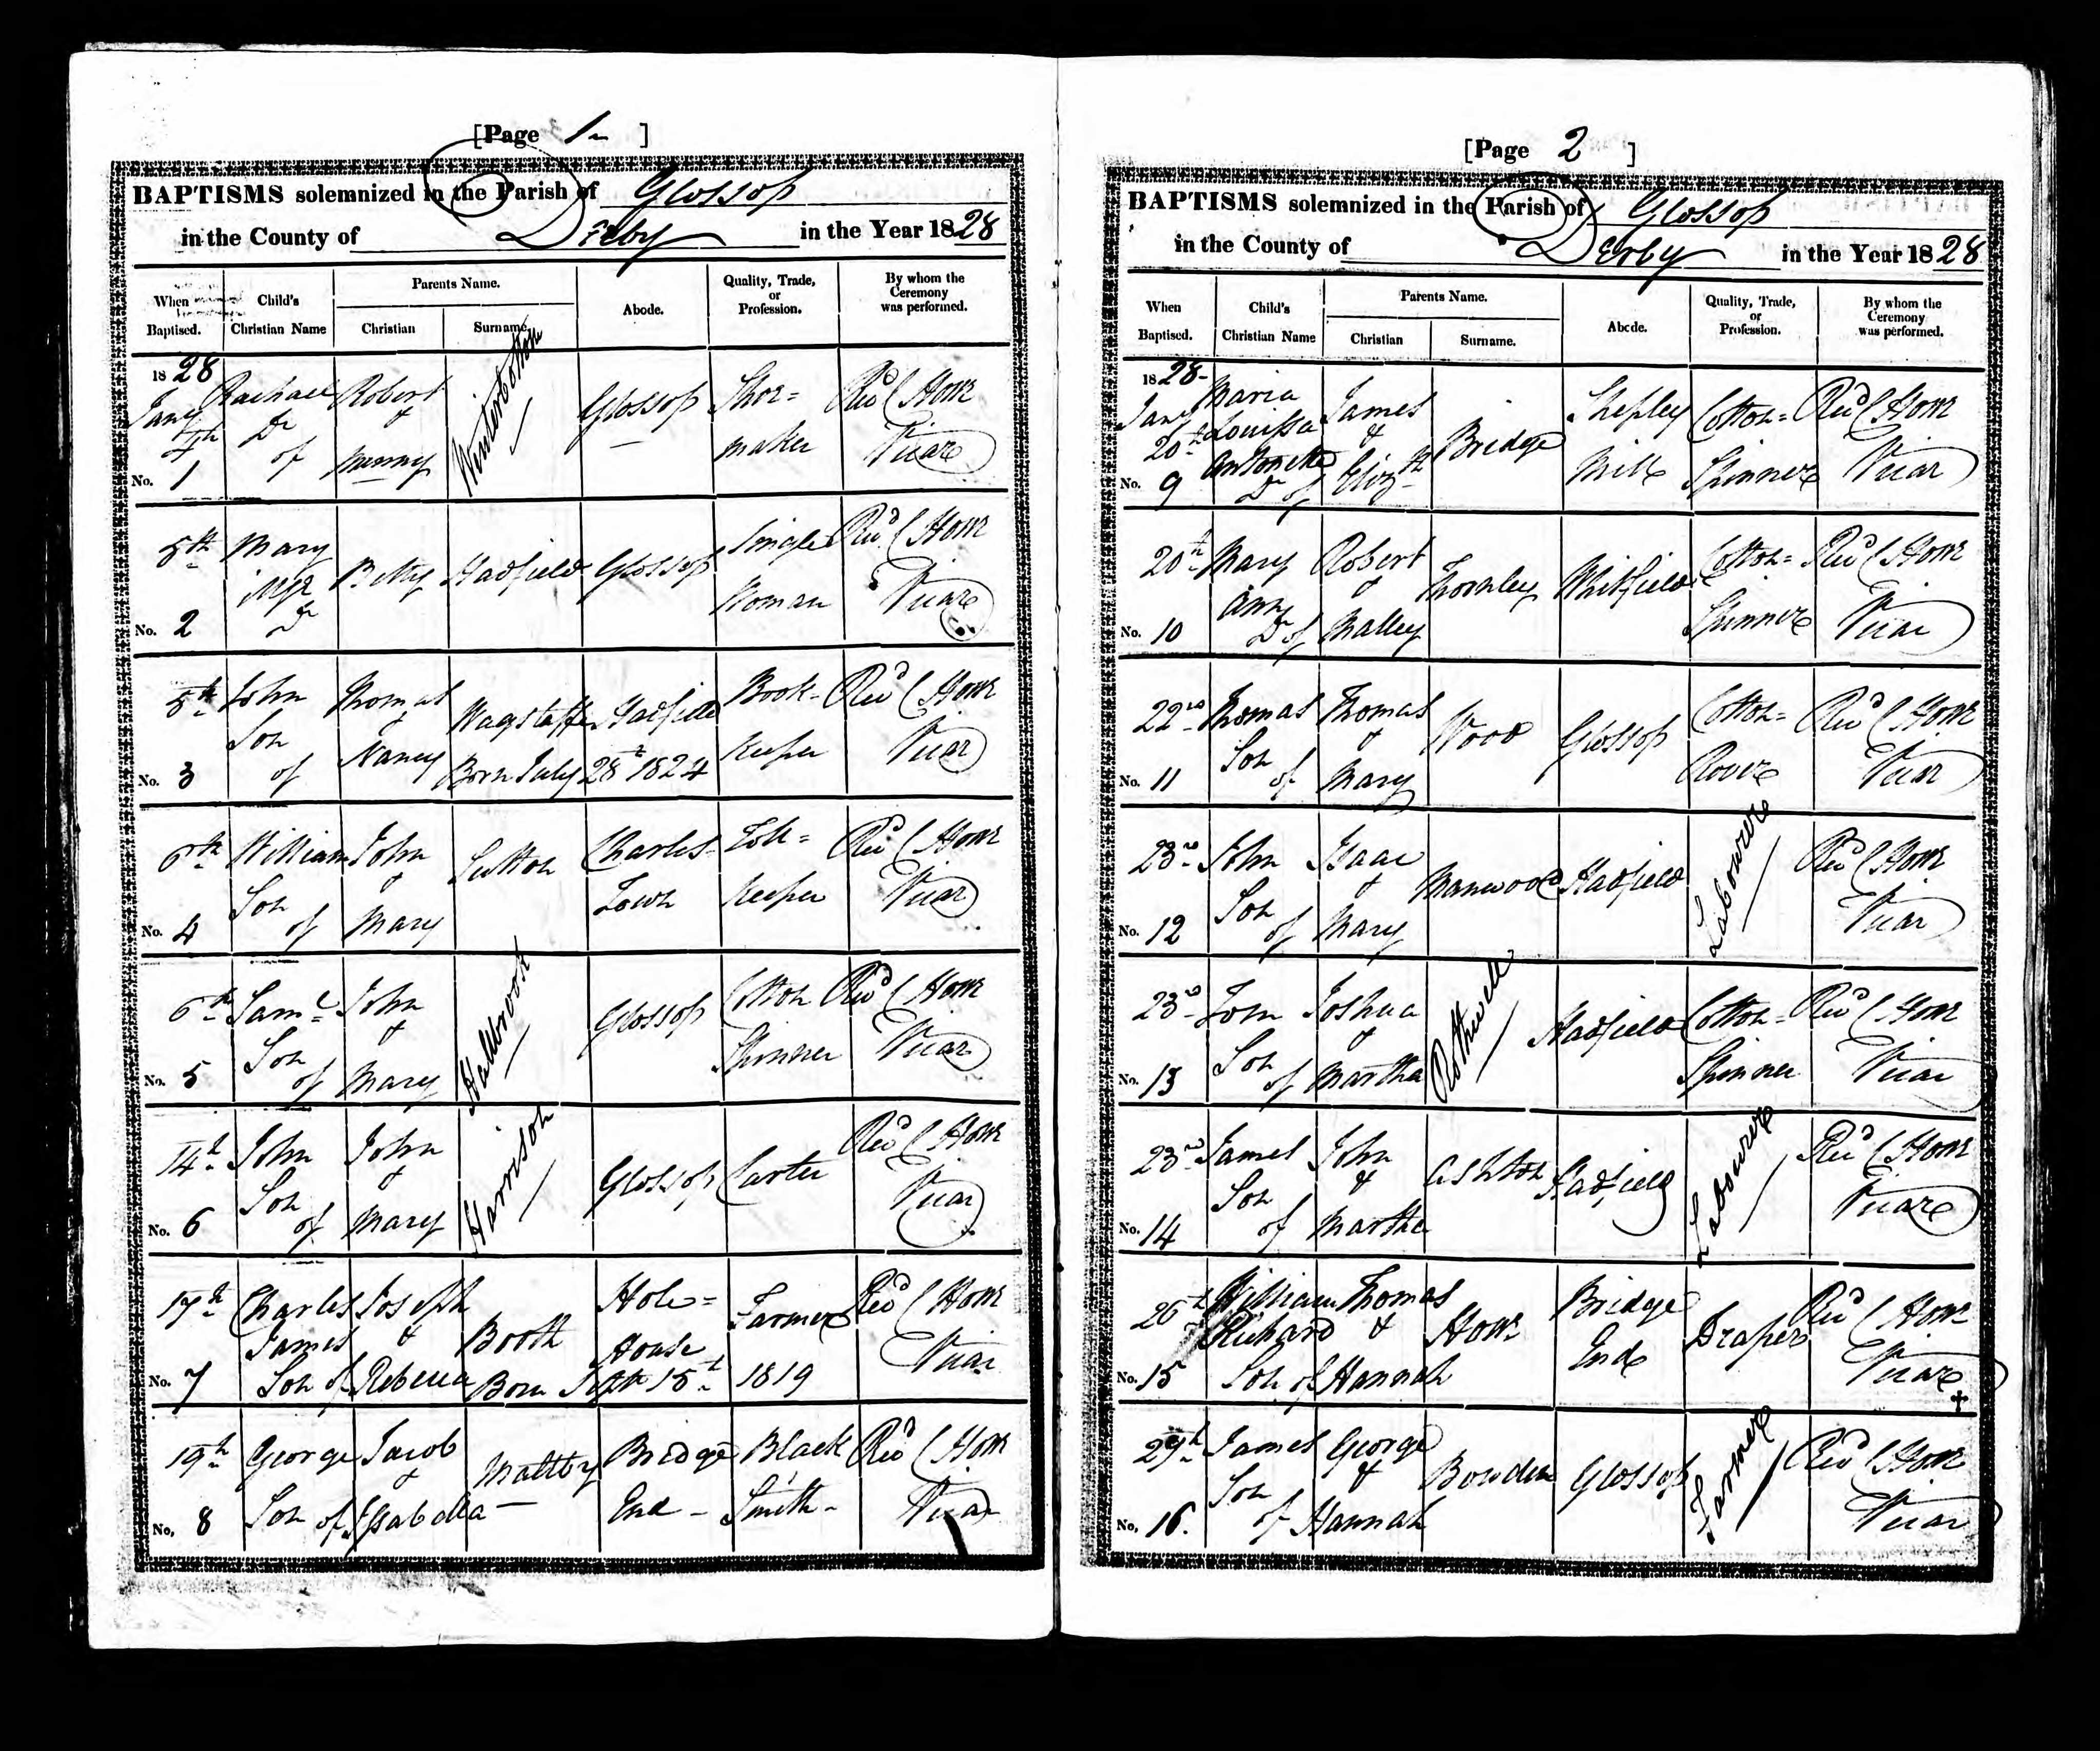 [Page 1 ]
BAPTISMS solemnized in the Parish of Glossop
in the County of Derby in the Year 1828
When Baptised. Child's Christian Name Parents Name. Christian Surname. Abode. Quality, Trade, or Profession. By whom the Ceremony was performed.
1828 Jany 4th No. 1 Rachael Dr of Robert & Nanny Winterbottom Glossop Shoe= maker Revd C Howe Vicar
5th No. 2 Mary Betty Hadfield Glossop Single Woman Revd C Howe Vicar
5th No. 3 John Son of Thomas & Nancy Wagstaffe Hadfield Book- Keeper Revd C Howe Vicar
Born July 28th 1824
6th No. 4 William Son of John & Mary Charles- Town Keeper Revd C Howe Vicar
6th No. 5 Saml Son of John & Mary Hallbrook Glossop Cotton Spinner Revd C Howe Vicar
14th No. 6 John Son of John & Mary Harrison Glossop Carter Revd C Howe Vicar
17th No. 7 Charles James Son of Joseph & Rebecca Booth Hole= House Farmer Revd C Howe Vicar
Born Septr 15th 1819
19th No. 8 George Son of Jacob & Isabella Maltby Bridge End - Black Smith - Revd C Howe Vicar
[Page 2 ]
BAPTISMS solemnized in the Parish of Glossop
in the County of Derby in the Year 1828
When Baptised. Child's Christian Name Parents Name. Christian Surname. Abode. Quality, Trade, or Profession. By whom the Ceremony was performed.
1828- Jany 20th No. 9 Maria Louissa Antonette Dr of James & Elizth Bridge Shepley Mill Cotton= Spinner Revd C Howe Vicar
20th No. 10 Mary Ann Dr of Robert & Malley Thornley Whitfield Cotton= Spinner Revd C Howe Vicar
22nd No. 11 Thomas Son of Thomas & Mary Wood Glossop Cotton= Rover Revd C Howe Vicar
23rd No. 12 John Son of Isaac & Mary Manwood Hadfield Labourer Revd C Howe Vicar
23rd No. 13 Tom Son of Joshua & Martha Rothwell Hadfield Cotton= Spinner Revd C Howe Vicar
23rd No. 14 James Son of John & Martha Ashton Hadfield Labourer Revd C Howe Vicar
26th No. 15 William Richard Son of Thomas & Hannah Howe Bridge End Draper Revd C Howe Vicar
29th No. 16. James Son of George & Hannah Bowden Glossop Farmer Revd C Howe Vicar